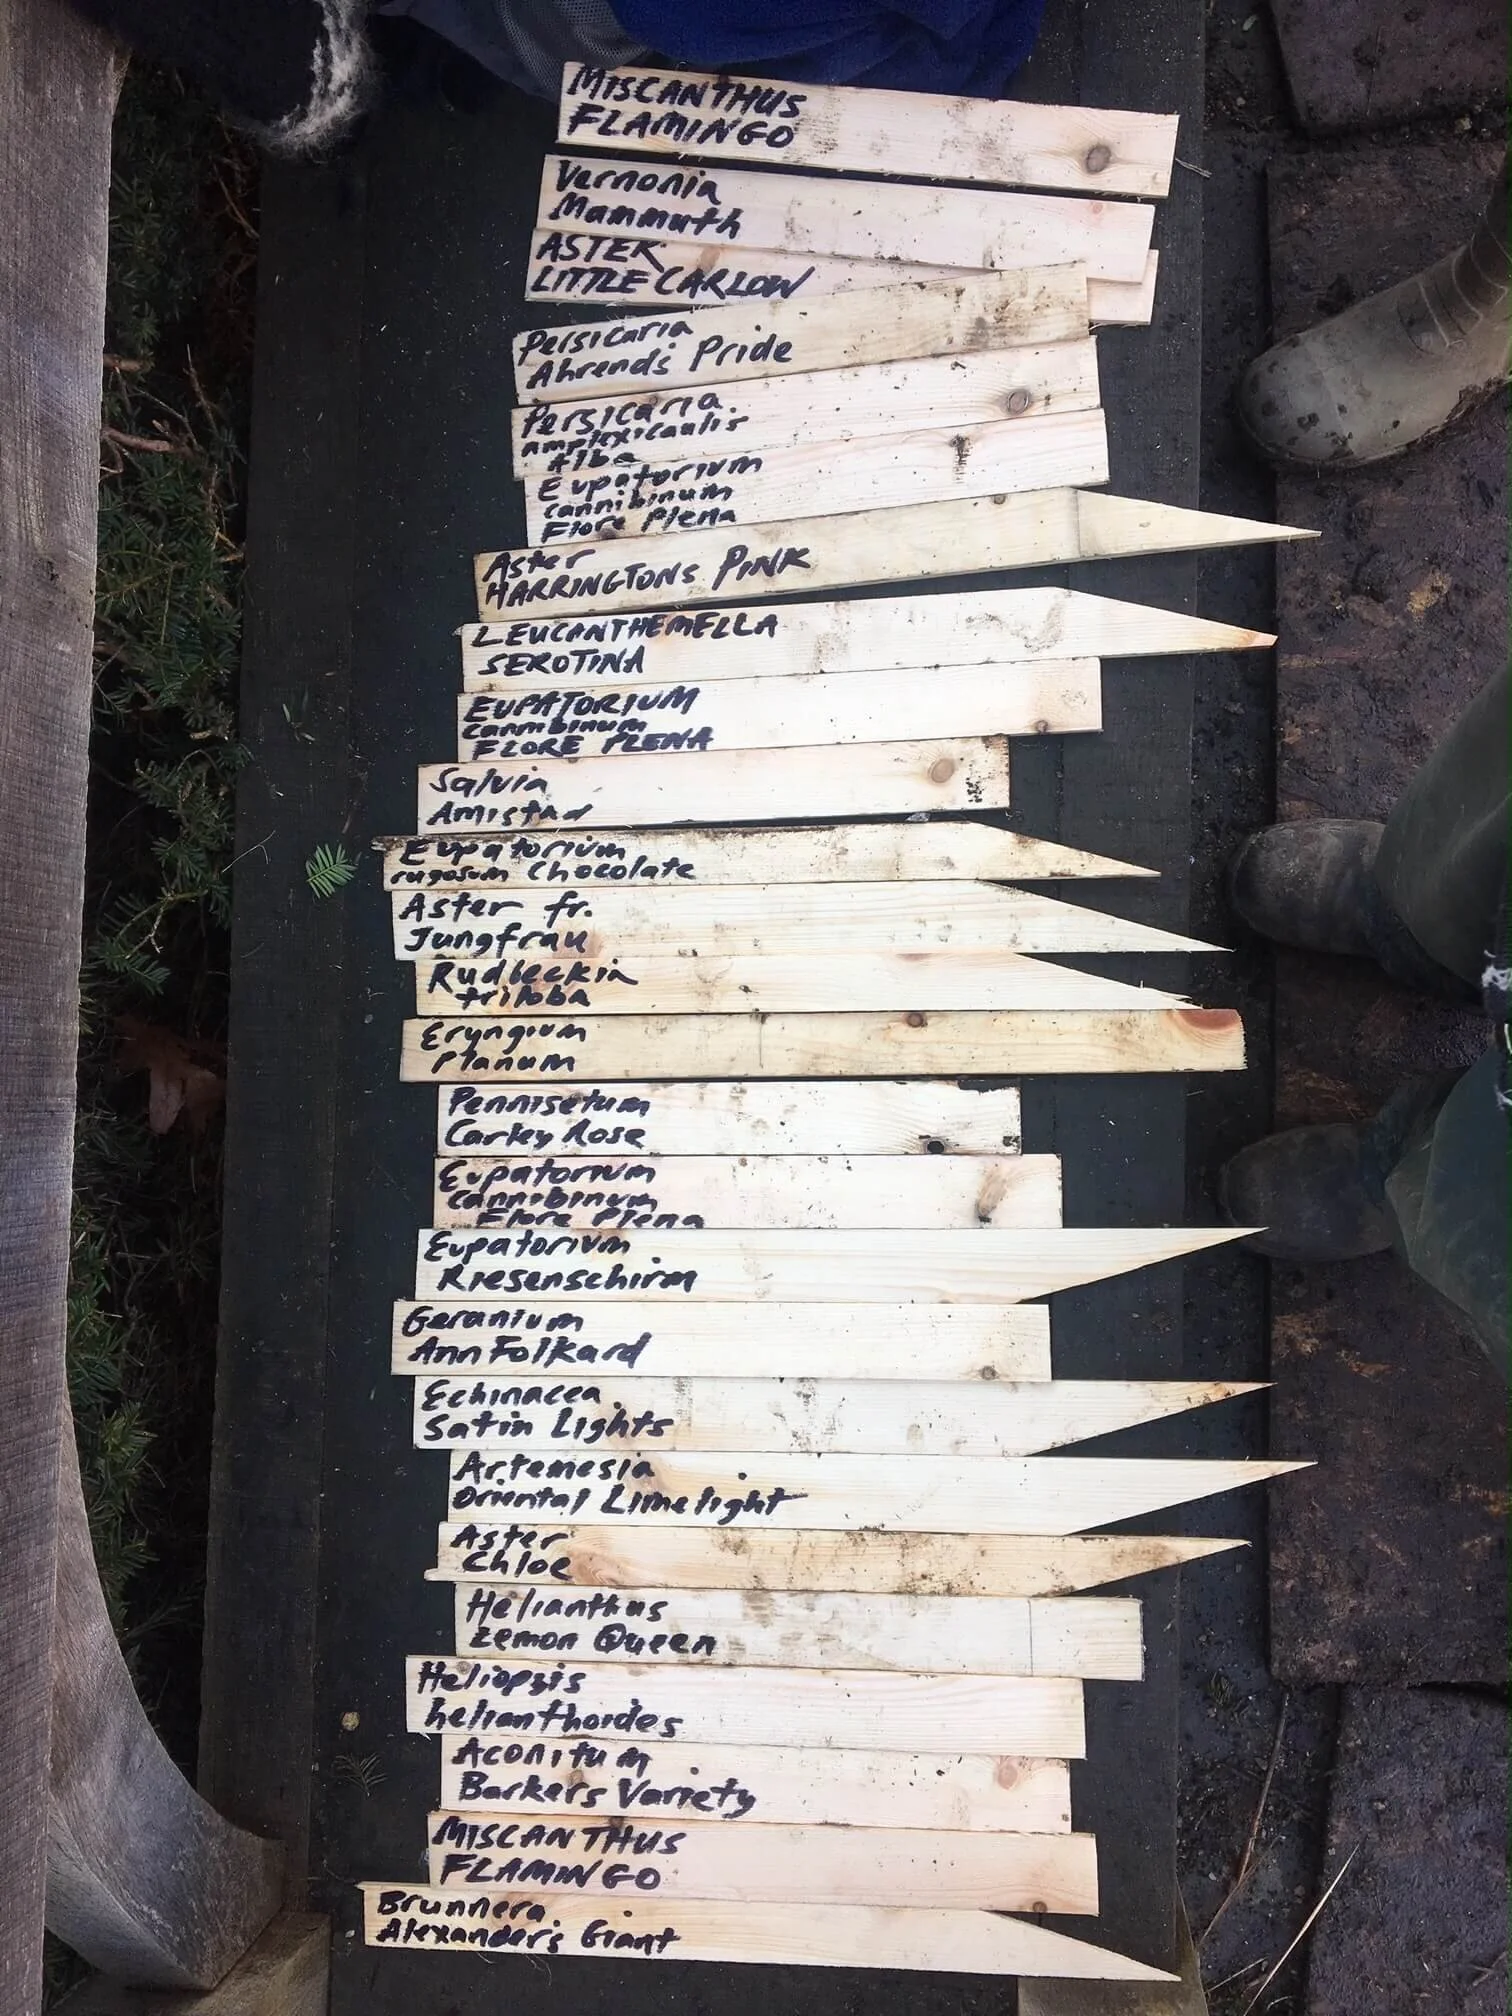 MISCANTHUS
FLAMINGO
Vernonia
Mammuth
ASTER
LITTLE CARLOW
Persicaria
Ahrends Pride
Persicaria
amplexicaulis
Alba
Eupatorium
cannibinum
Flore Plena
Aster
HARRINGTONS PINK
LEUCANTHEMELLA
SEROTINA
EUPATORIUM
cannibinum
FLORE PLENA
Salvia
Amistad
Eupatorium
rugosum Chocolate
Aster fr.
Jungfrau
Rudbeckia
triloba
Eryngium
Planum
Pennisetum
Carley Rose
Eupatorium
cannibinum
Flore Plena
Eupatorium
Riesenschirm
Geranium
Ann Folkard
Echinacea
Satin Lights
Artemesia
Oriental Limelight
Aster
Chloe
Helianthus
Lemon Queen
Heliopsis
helianthoides
Aconitum
Barkers Variety
MISCANTHUS
FLAMINGO
Brunnera
Alexander's Giant